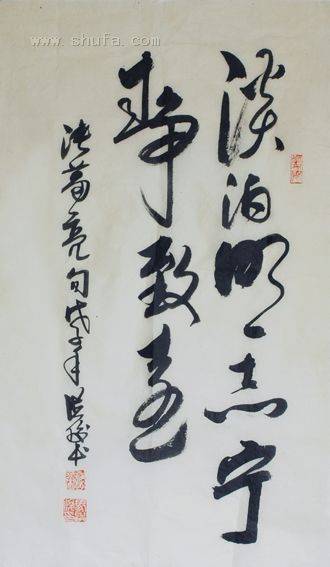 www.shufa.com
淡泊明志宁
静致遠
诸葛亮句戊子年